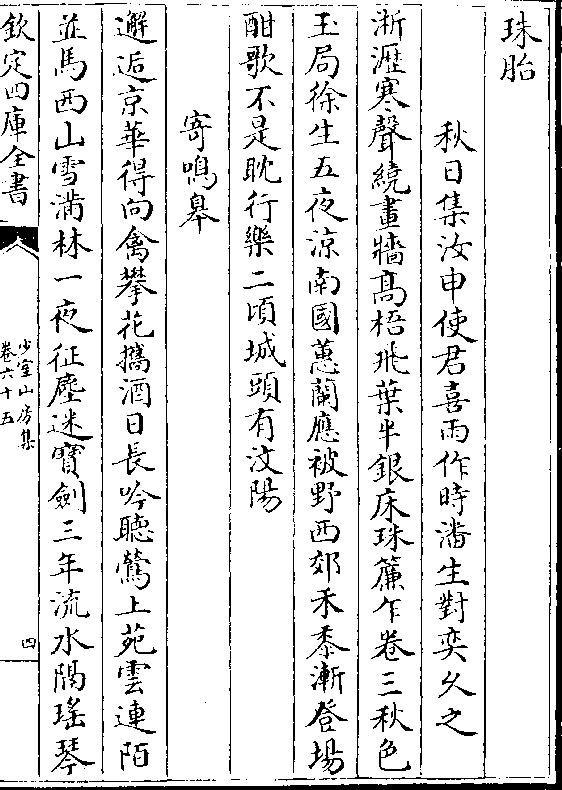 珠胎
秋日集汝申使君喜雨作時潘生對奕久之
淅瀝寒聲繞畫牆髙梧飛葉半銀床珠簾乍卷三秋色
玉局徐生五夜涼南國蕙蘭應被野西郊禾黍漸登場
酣歌不是耽行樂二頃城頭有汶陽
寄鳴皋
邂逅京華得向禽攀花攜酒日長吟聽鶯上苑雲連陌
並馬西山雪滿林一夜征塵迷寶劍三年流水隔瑤琴
欽定四庫全書
少室山房集
卷六十五
四